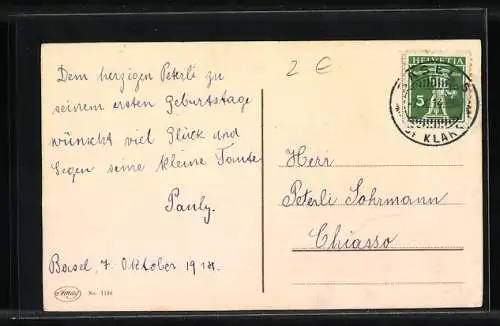 Dem herzigen Peterli zu
seinem ersten Geburtstage
wünscht viel Glück und
Segen seine kleine Tante
Pauly.
Basel, 7. Oktober 19
Amag
No. 1124
2 €
HELVETIA
5
ST. KLARA
Herr
Peterli Sohrmann
Chiasso